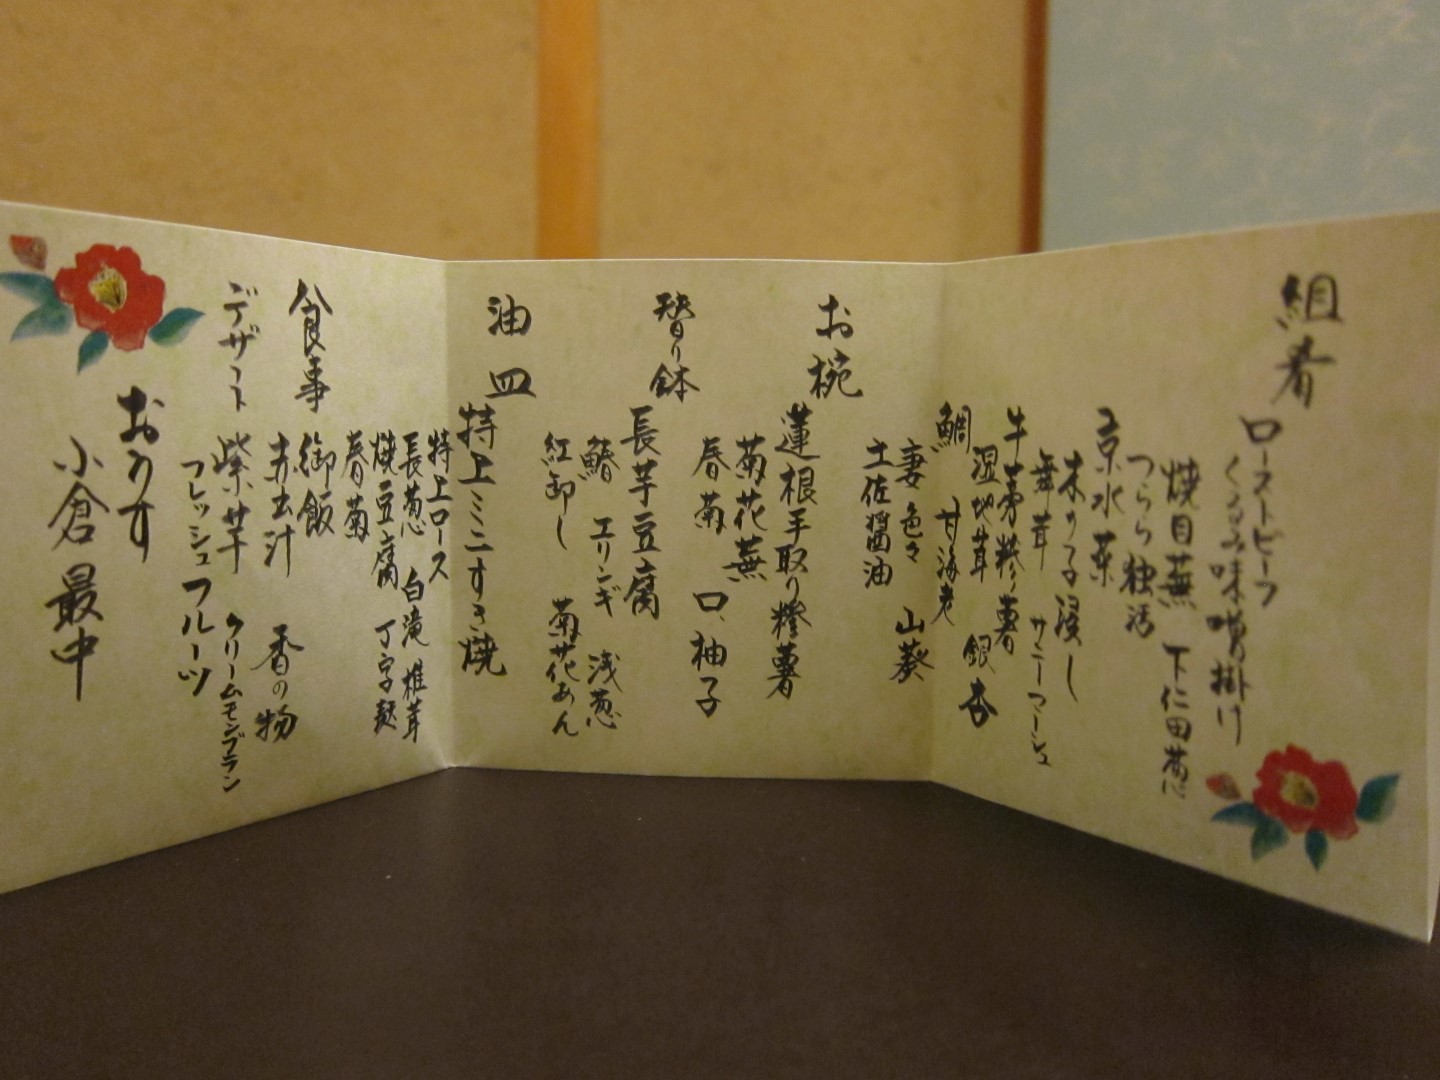 組肴
ローストビーフ
くるみ味噌掛け
焼目蕪 下仁田葱
つらら独活
京水菜
木の子浸し
舞茸 サニーマーシュ
牛蒡糝薯
湿地茸 銀杏
鯛 甘海老
妻色々 山葵
土佐醤油
お椀
蓮根手取り糝薯
菊花蕪
春菊 口、柚子
替り鉢
長芋豆腐
鰆 エリンギ 浅葱
紅卸し 菊花あん
油皿
特上ミニすき焼
特上ロース
長葱 白滝 椎茸
焼豆腐 丁字麸
春菊
食事
御飯
赤出汁 香の物
デザート
紫芋 クリームモンブラン
フレッシュフルーツ
おりす
小倉最中